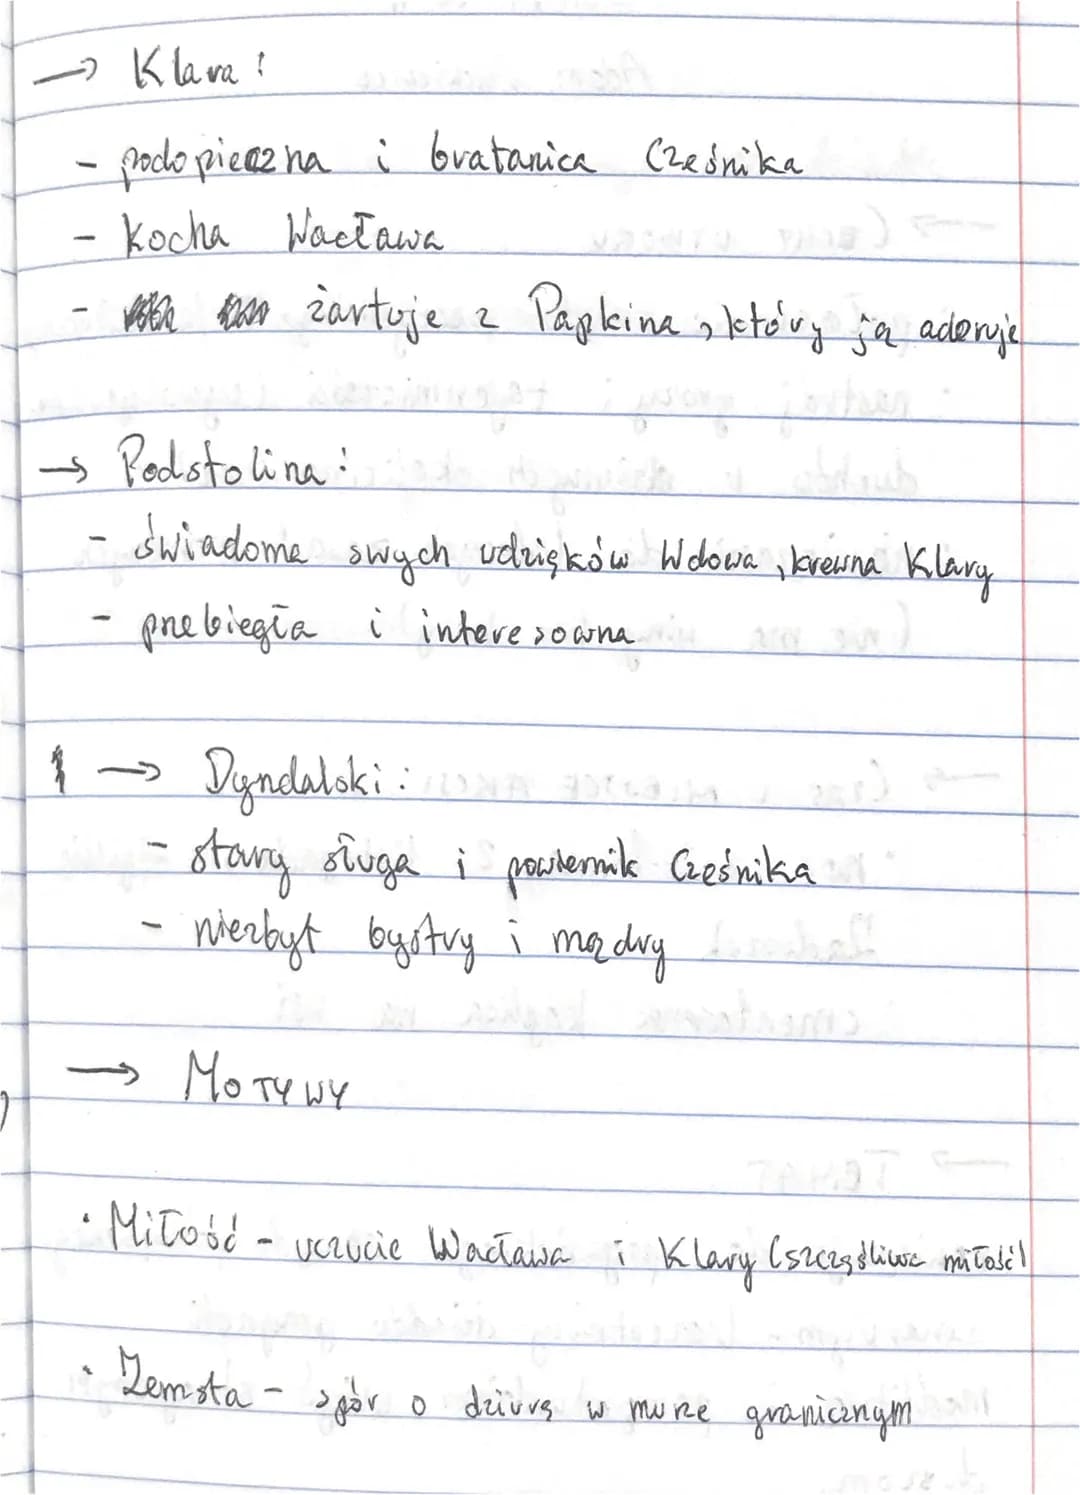 → Klara:
- podopieczna i bratanica Cześnika
- kocha Wacława
- żartuje z Papkina, który ją adoruje
→ Podstolina:
- świadoma swych wdzięków wdowa, krewna Klary
- przebiegła i interesowna
→ Dyndalski:
- stary sługa i powiernik Cześnika
- niezbyt bystry i mądry
→ MOTYWY
· Miłość - uczucie Wacława i Klary (szczęśliwa miłość)
· Zemsta - spór o dziurę w murze granicznym